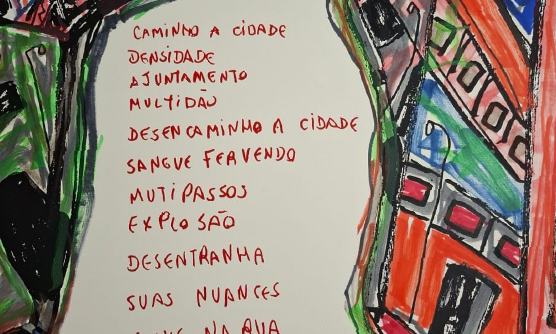 CAMINHO A CIDADE
DENSIDADE
AJUNTAMENTO
MULTIDÃO
DESENCAMINHO A CIDADE
SANGUE FERVENDO
MUTIPASSOS
EXPLOSÃO
DESENTRANHA
SUAS NUANCES
NA RUA